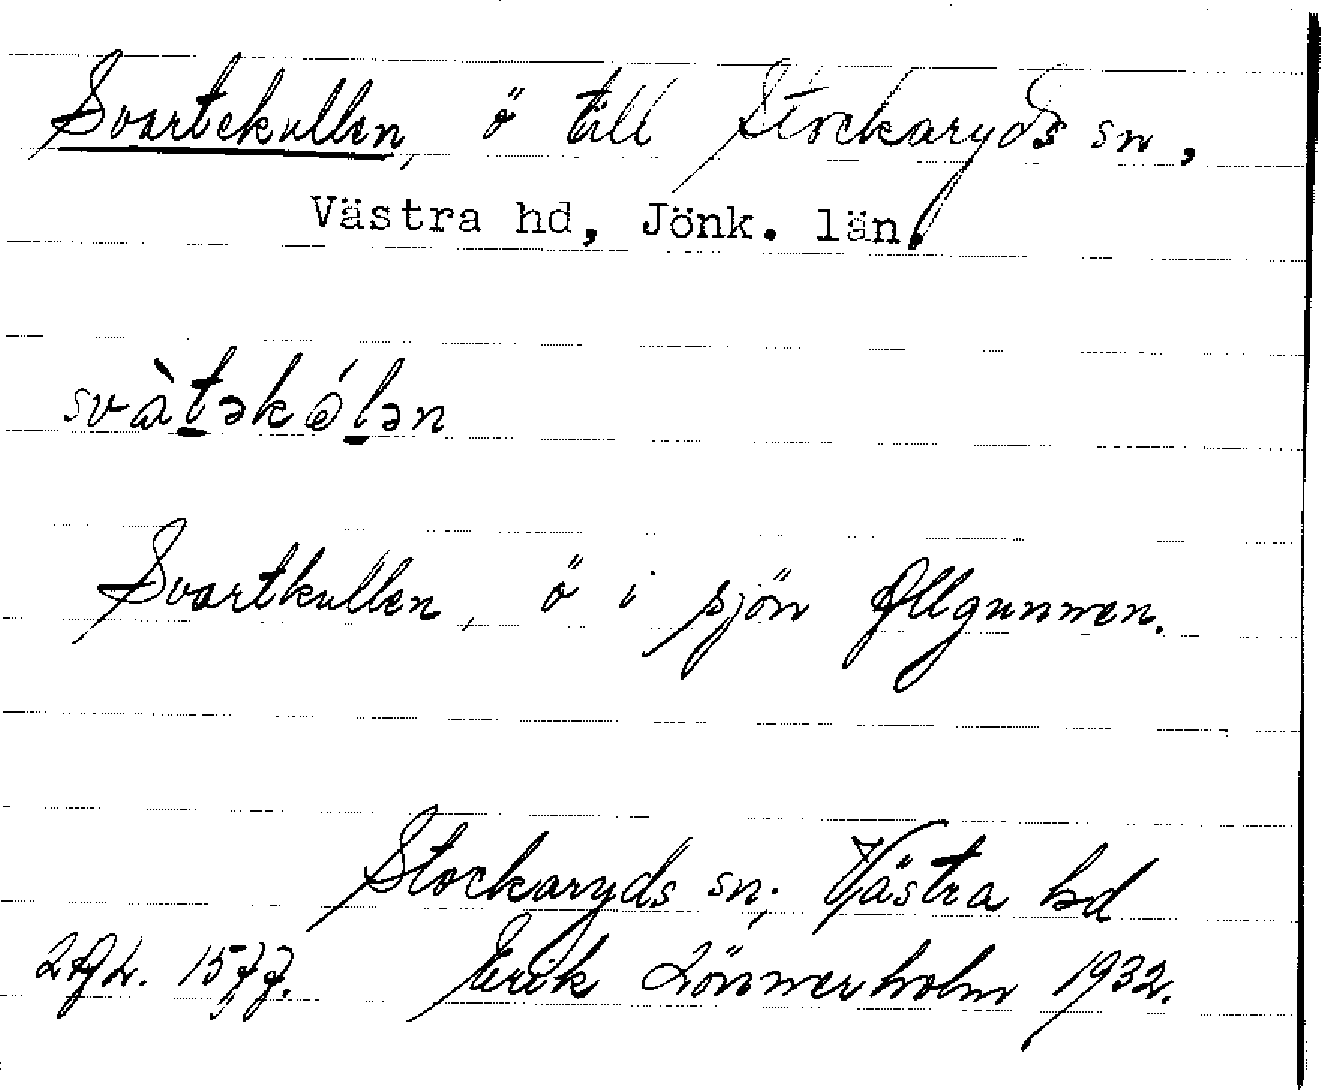 Svartekullen, ö till Stockaryds sn,
Västra hd, Jönk. län.
svàtəkɵ́lən
Svartkullen, ö i sjön Ållgunnen.
Stockaryds sn; Västra hd
Erik Lönnerholm 1932.